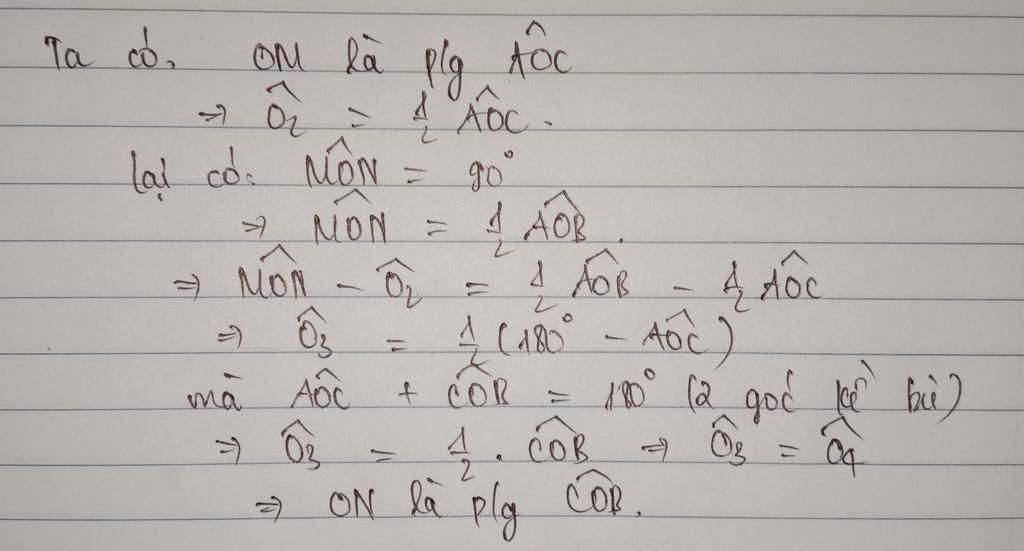 Ta có, OM là p/g AÔC
⇒ Ô₂ = 1/2 AÔC.
lại có: MÔN = 90°
⇒ MÔN = 1/2 AÔB.
⇒ MÔN - Ô₂ = 1/2 AÔB - 1/2 AÔC
⇒ Ô₃ = 1/2 (180° - AÔC)
mà AÔC + CÔB = 180° (2 góc kề bù)
⇒ Ô₃ = 1/2 . CÔB ⇒ Ô₃ = Ô₄
⇒ ON là p/g CÔB.